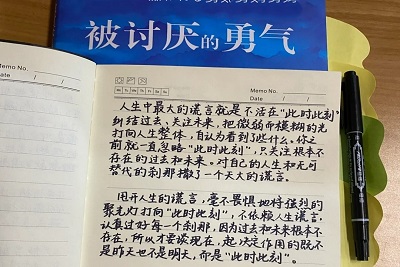 被讨厌的勇气
Memo No.
Memo No.
Date / /
Mo Tu We Th Fr Sa Su
人生中最大的谎言就是不活在"此时此刻"
纠结过去、关注未来,把微弱而模糊的光
打向人生整体,自认为看到了些什么。你之
前就一直忽略"此时此刻",只关注根本不
存在的过去和未来。对自己的人生和无可
替代的刹那撒了一个天大的谎言。
甩开人生的谎言,毫不畏惧地将强烈的
聚光灯打向"此时此刻",不依赖人生谎言,
认真过好每一个刹那,因为过去和未来根本不
存在,所以才要谈现在,起决定作用的既不
是昨天也不是明天,而是"此时此刻"。